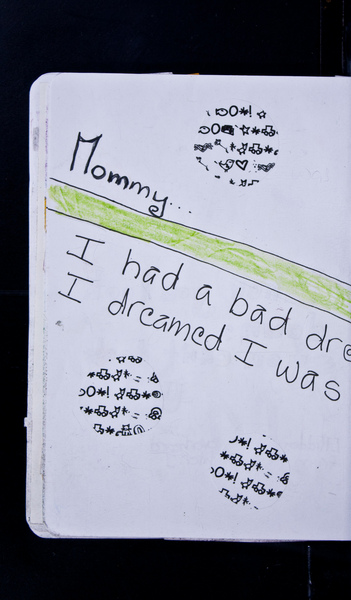 Mommy...
I had a bad dre
I dreamed I was